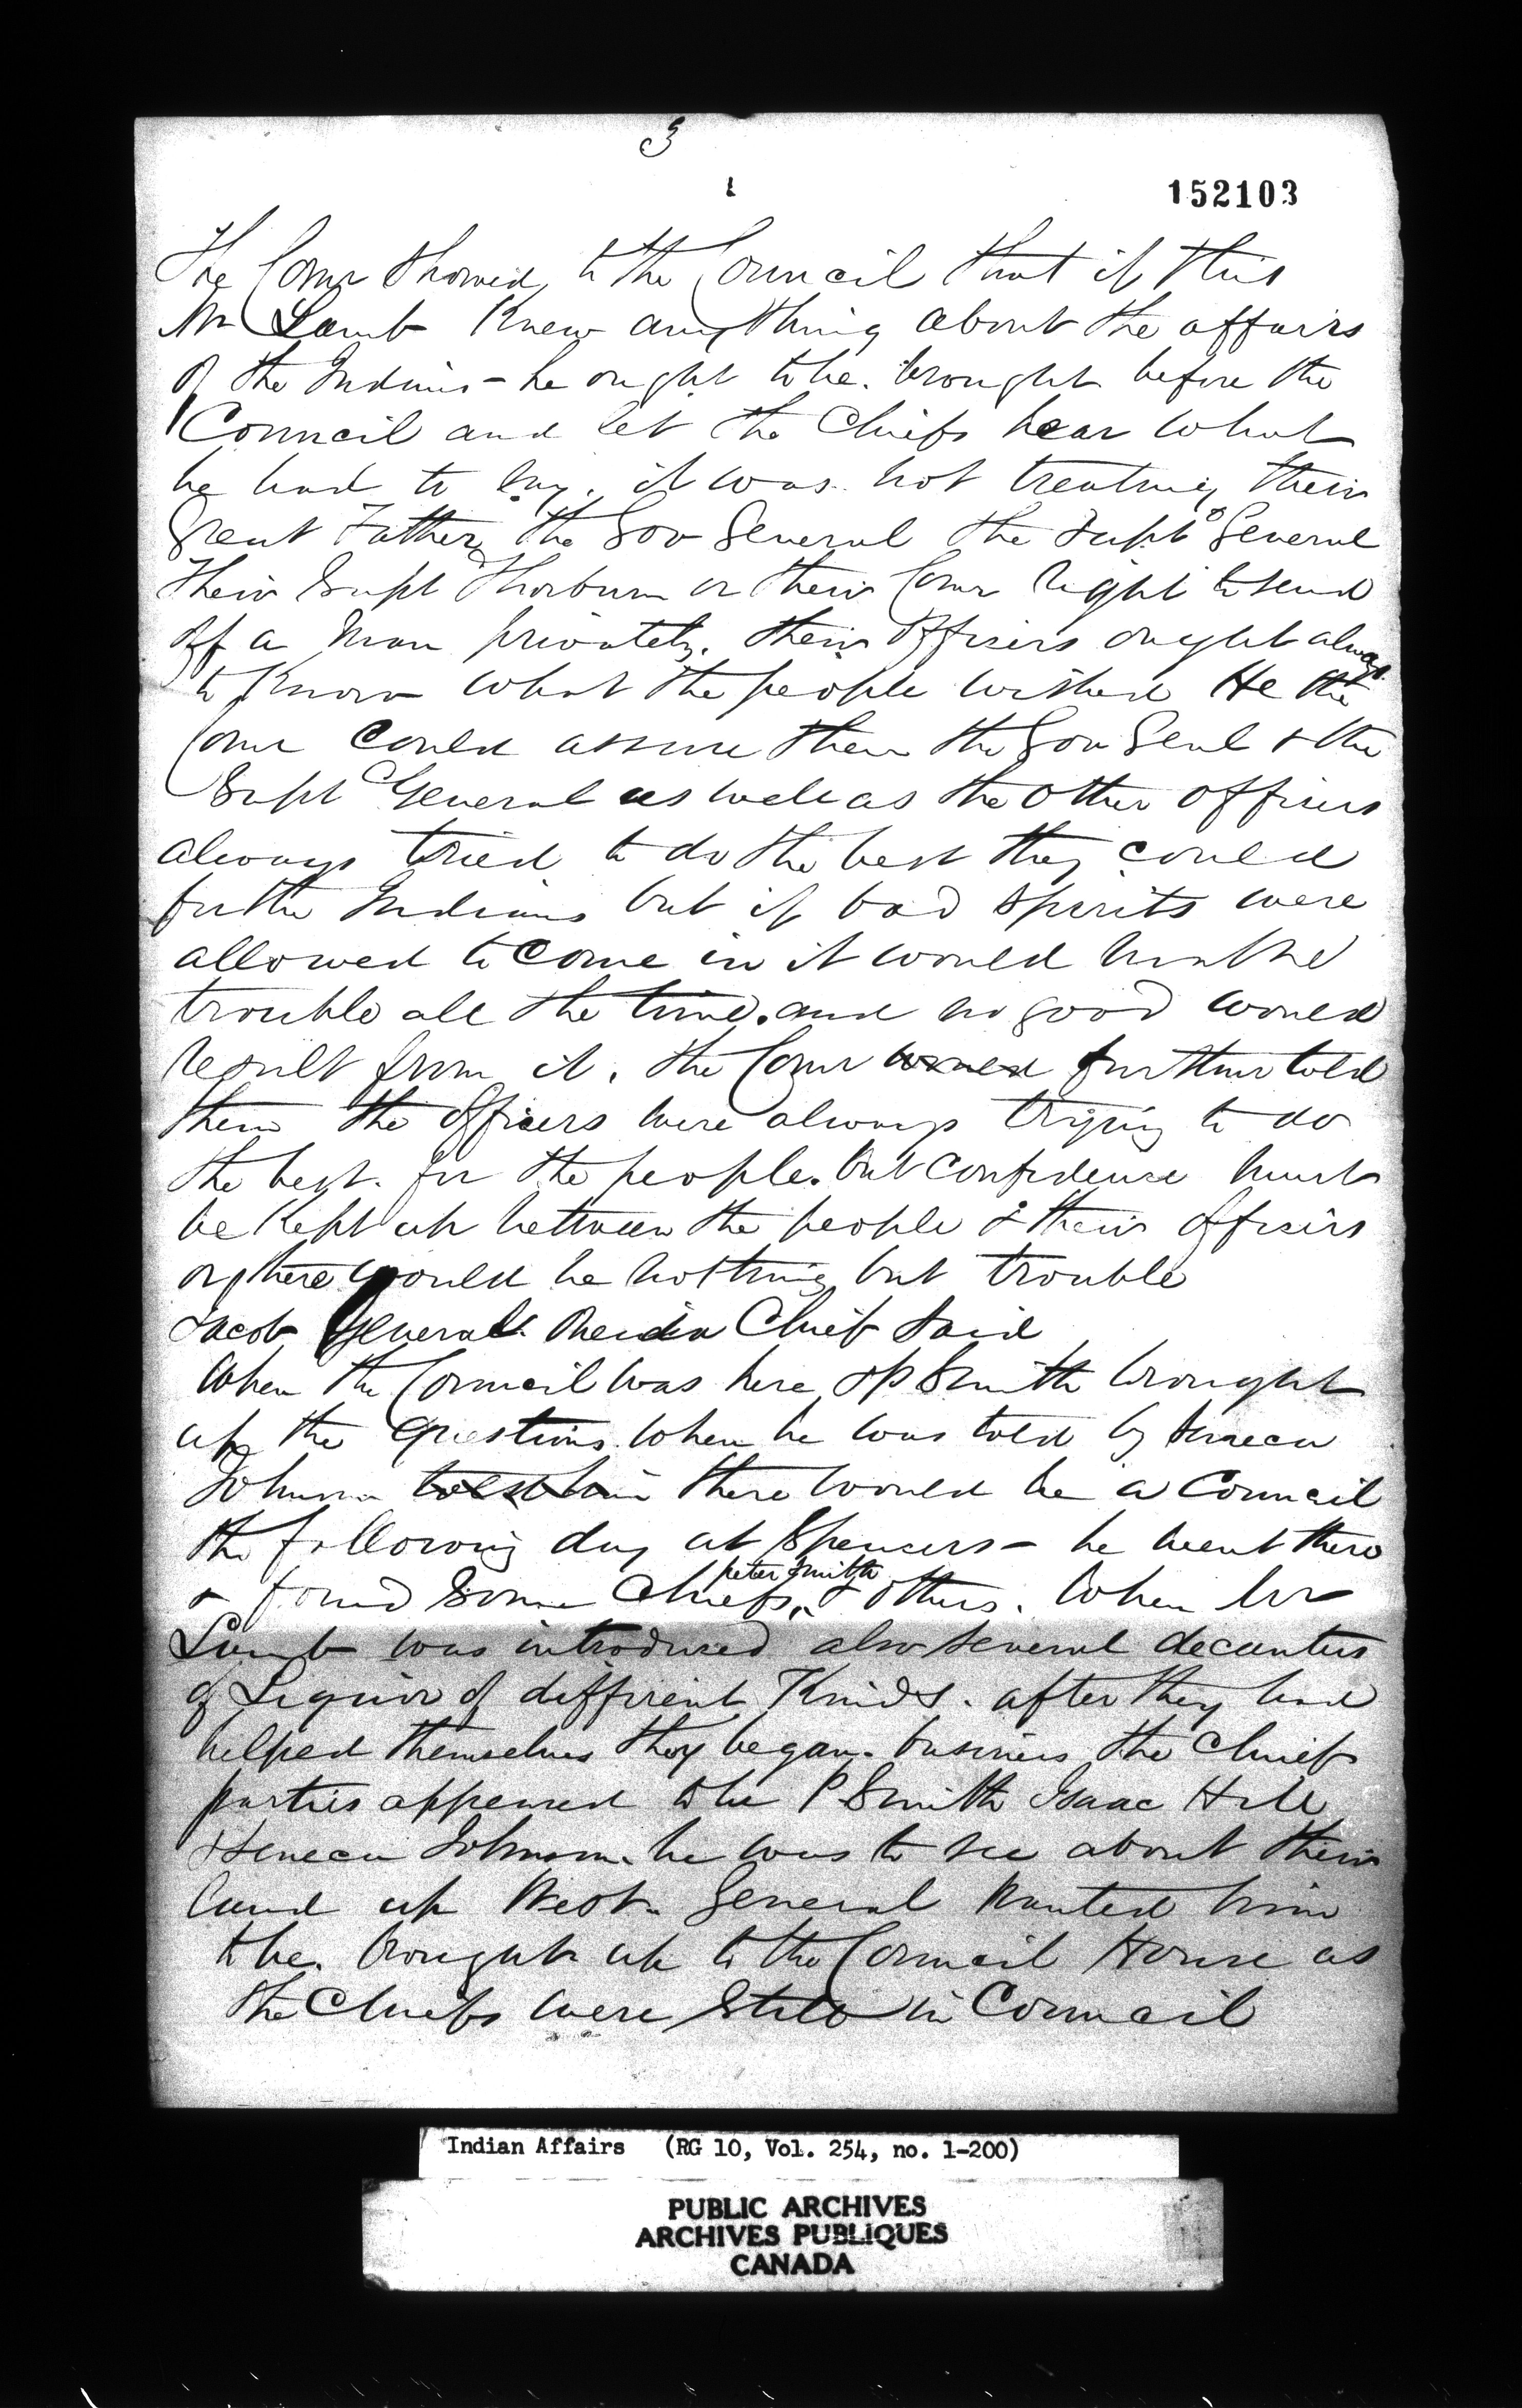 3
152103
The Comr showed to the Council that if this
Mr Lamb Knew any thing about the affairs
of the Indians - he ought to be brought before the
Council and let the Chiefs hear what
he had to say. it was not treating their
Great Father the Gov General the Supt General
their Supt Thorburn or their Comr right to send
off a man privately. their Officers ought always
to Know what the people wished He the
Comr could assure them the Gov Genl & the
Supt General as well as the other officers
always tried to do the best they could
for the Indians but if bad spirits were
allowed to come in it would make
trouble all the time. and no good would
result from it. the Comr would further told
them the officers were always trying to do
the best for the people. but confidence must
be Kept up between the people & their officers
or there would be nothing but trouble
Jacob General Oneida Chief said
When the Council was here & P Smith brought
up the questions when he was told by Seneca
Johnson told him there would be a Council
the following day at Spencers - he went there
& found some Chiefs, Peter Smith & others. When Mr
Lamb was introduced also several decanters
of Liquor of different Kinds. after they had
helped themselves they began business the Chief
parties appeared to be P Smith Isaac Hill
& Seneca Johnson. he was to see about their
land up West. General wanted him
to be brought up to the Council House as
the Chiefs were still in Council
Indian Affairs (RG 10, Vol. 254, no. 1-200)
PUBLIC ARCHIVES
ARCHIVES PUBLIQUES
CANADA